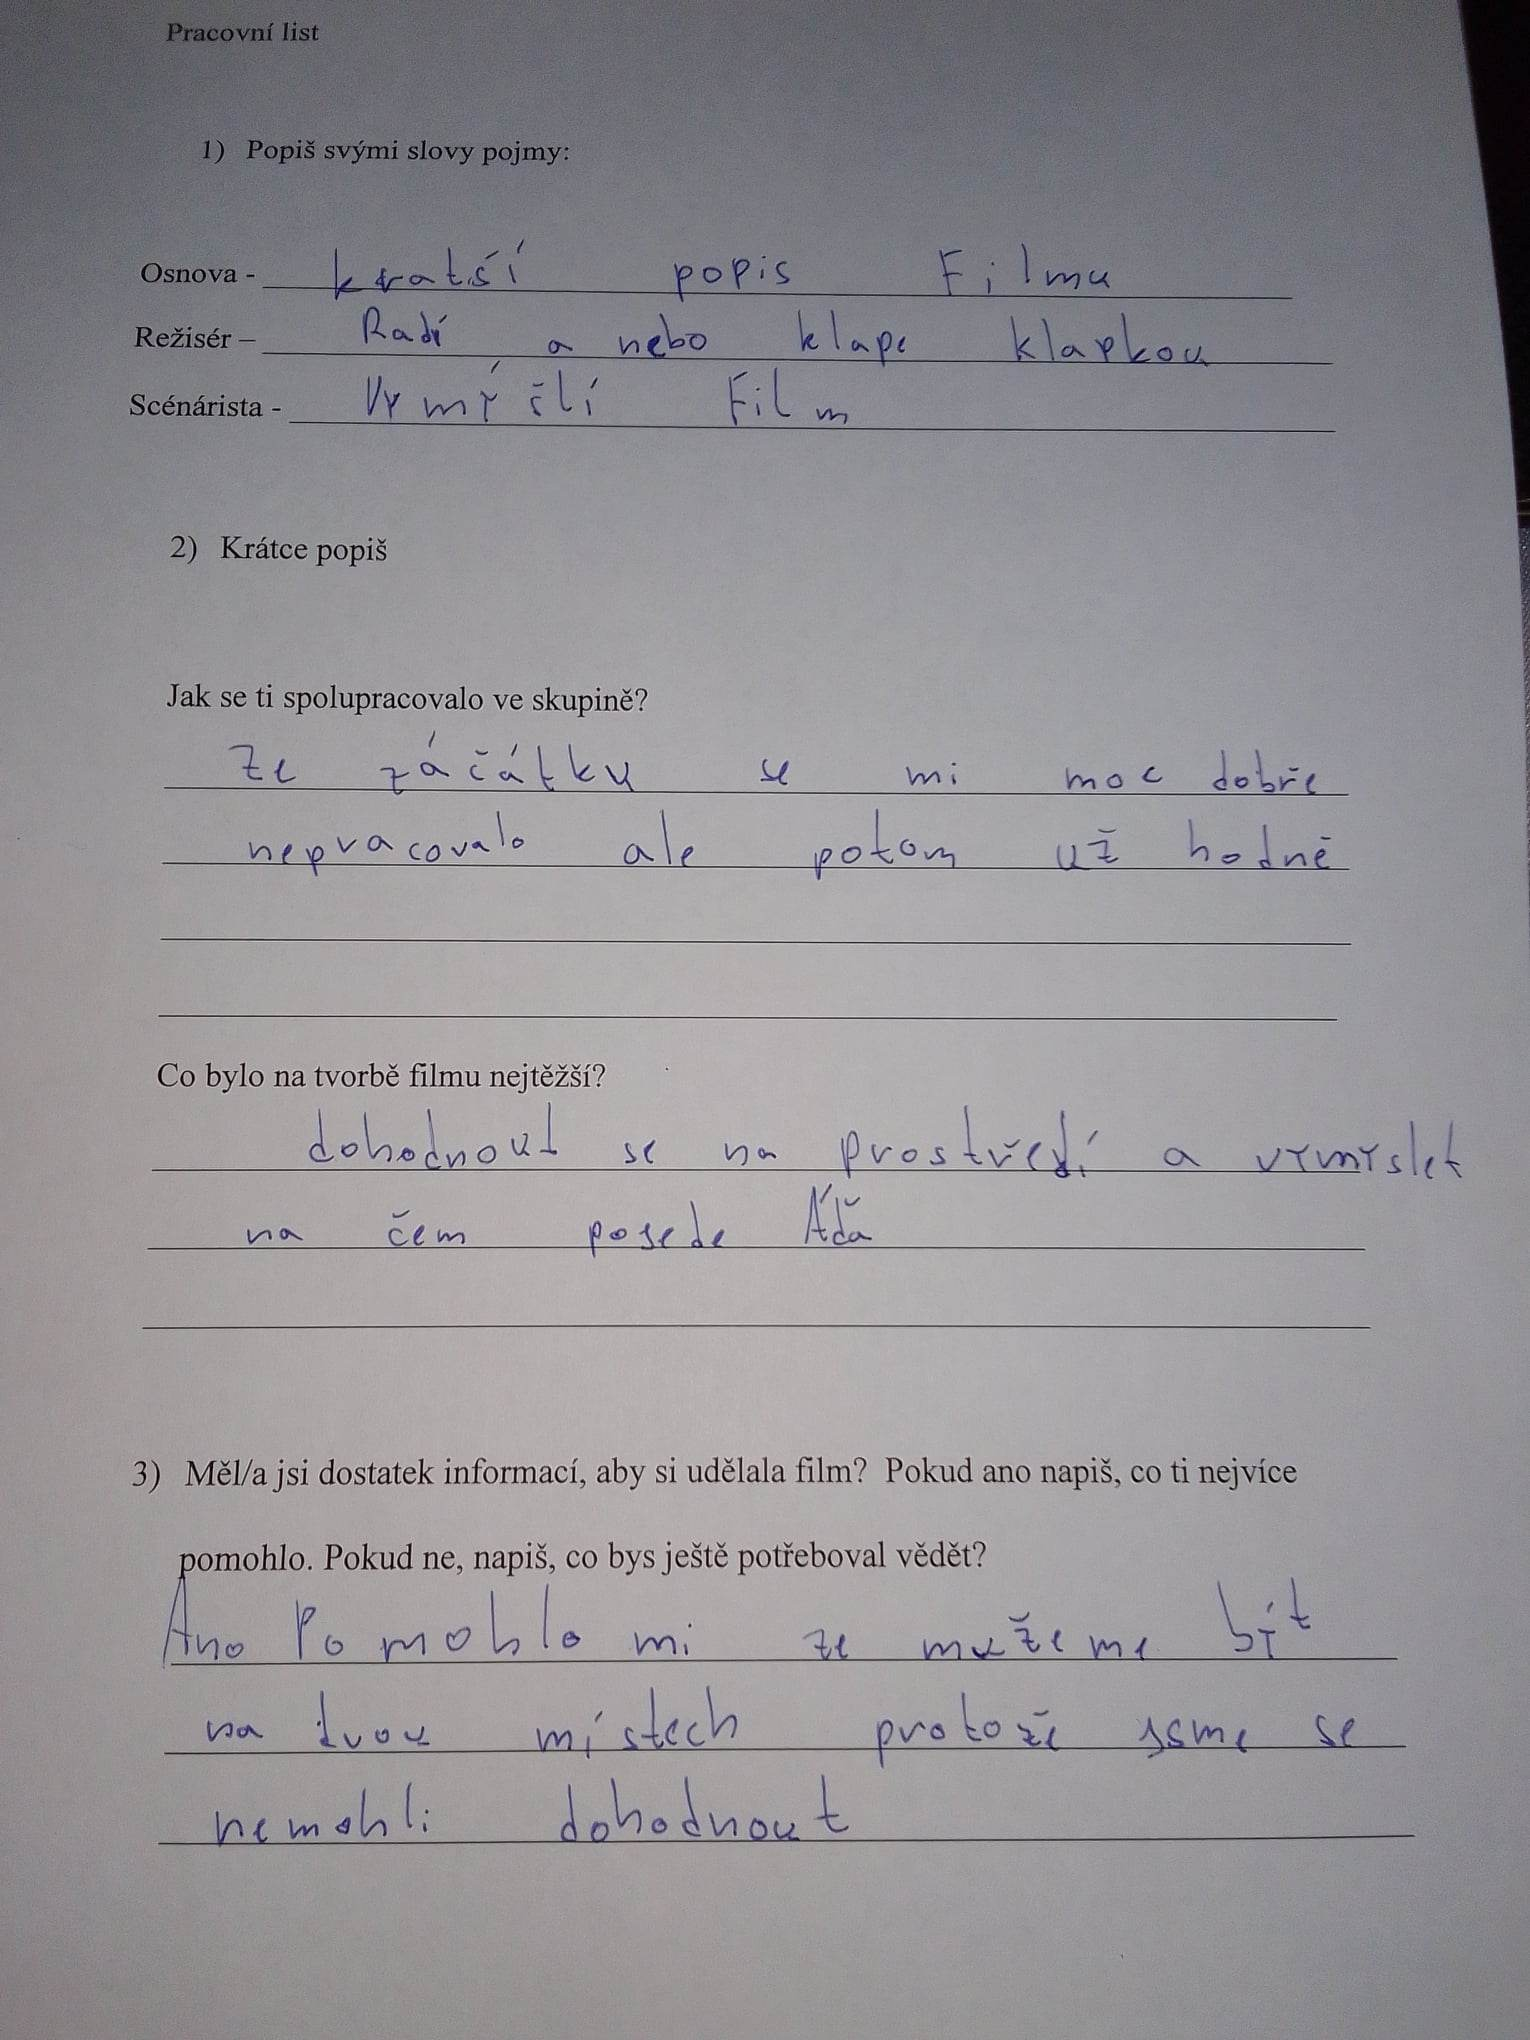 Pracovní list
1) Popiš svými slovy pojmy:
Osnova - kratší popis Filmu
Režisér – Radí a nebo klape klapkou
Scénárista - Vymýšlí Film
2) Krátce popiš
Jak se ti spolupracovalo ve skupině?
Ze záčátku se mi moc dobře
nepracovalo ale potom už hodně
Co bylo na tvorbě filmu nejtěžší?
dohodnout se na prostředí a vymyslet
na čem posede Áďa
3) Měl/a jsi dostatek informací, aby si udělala film? Pokud ano napiš, co ti nejvíce
pomohlo. Pokud ne, napiš, co bys ještě potřeboval vědět?
Ano Pomohlo mi že mužeme být
na dvou místech protože jsme se
nemohli dohodnout